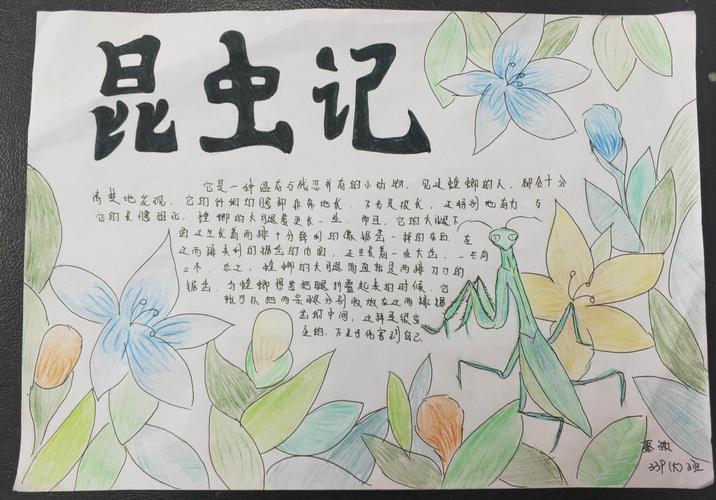 昆虫记
它是一种温存与残忍并存的小动物。见过螳螂的人，都会十分
清楚地发现，它的纤细的腰部非常地长。不光是很长，还特别地有力。与
它的长腰相比，螳螂的大腿要更长一些。而且，它的大腿下
面还生长着两排十分锋利的像锯齿一样的东西。在
这两排尖利的锯齿的后面，还生长着一些大齿，一共有
三个。总之，螳螂的大腿简直就是两排刀口的
锯齿。当螳螂想要把腿折叠起来的时候，它
就可以把两条腿分别收放在这两排锯
齿的中间，这样是很安
全的，不至于伤害到自己。
(六)班